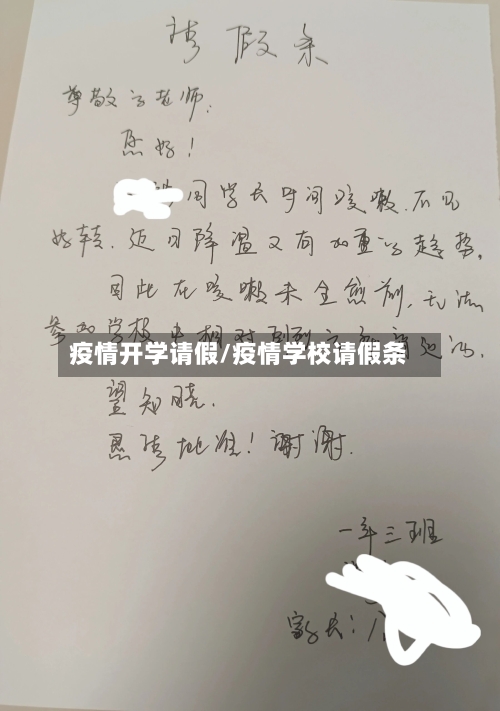 请假条
尊敬的老师:
您好!
同学长时间咳嗽.不见
好转.近日降温又有加重的趋势。
因此在咳嗽未全愈前,无法
参加学校
疫情开学请假/疫情学校请假条
望知晓.
恳请批准!谢谢.
一年三班
家长: